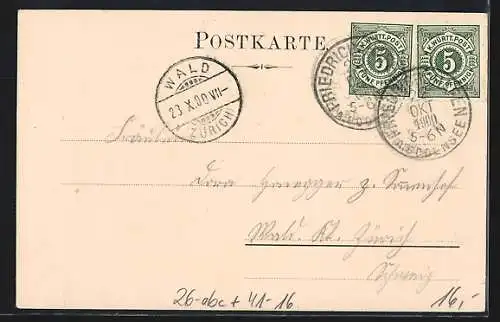 POSTKARTE
K.WÜRTT.POST
5
FÜNF PFENNIG
K.WÜRTT.POST
5
FÜNF PFENNIG
FRIEDRICH
5-6N
OKT
1900
5-6N
BODENSEE
WALD
23.X.00.VII-
(ZÜRICH)
Fräulein
Dora Honegger z. Sonnhof
Wald. Kt. Zürich
Schweiz
26-abc + 41-16
16,-